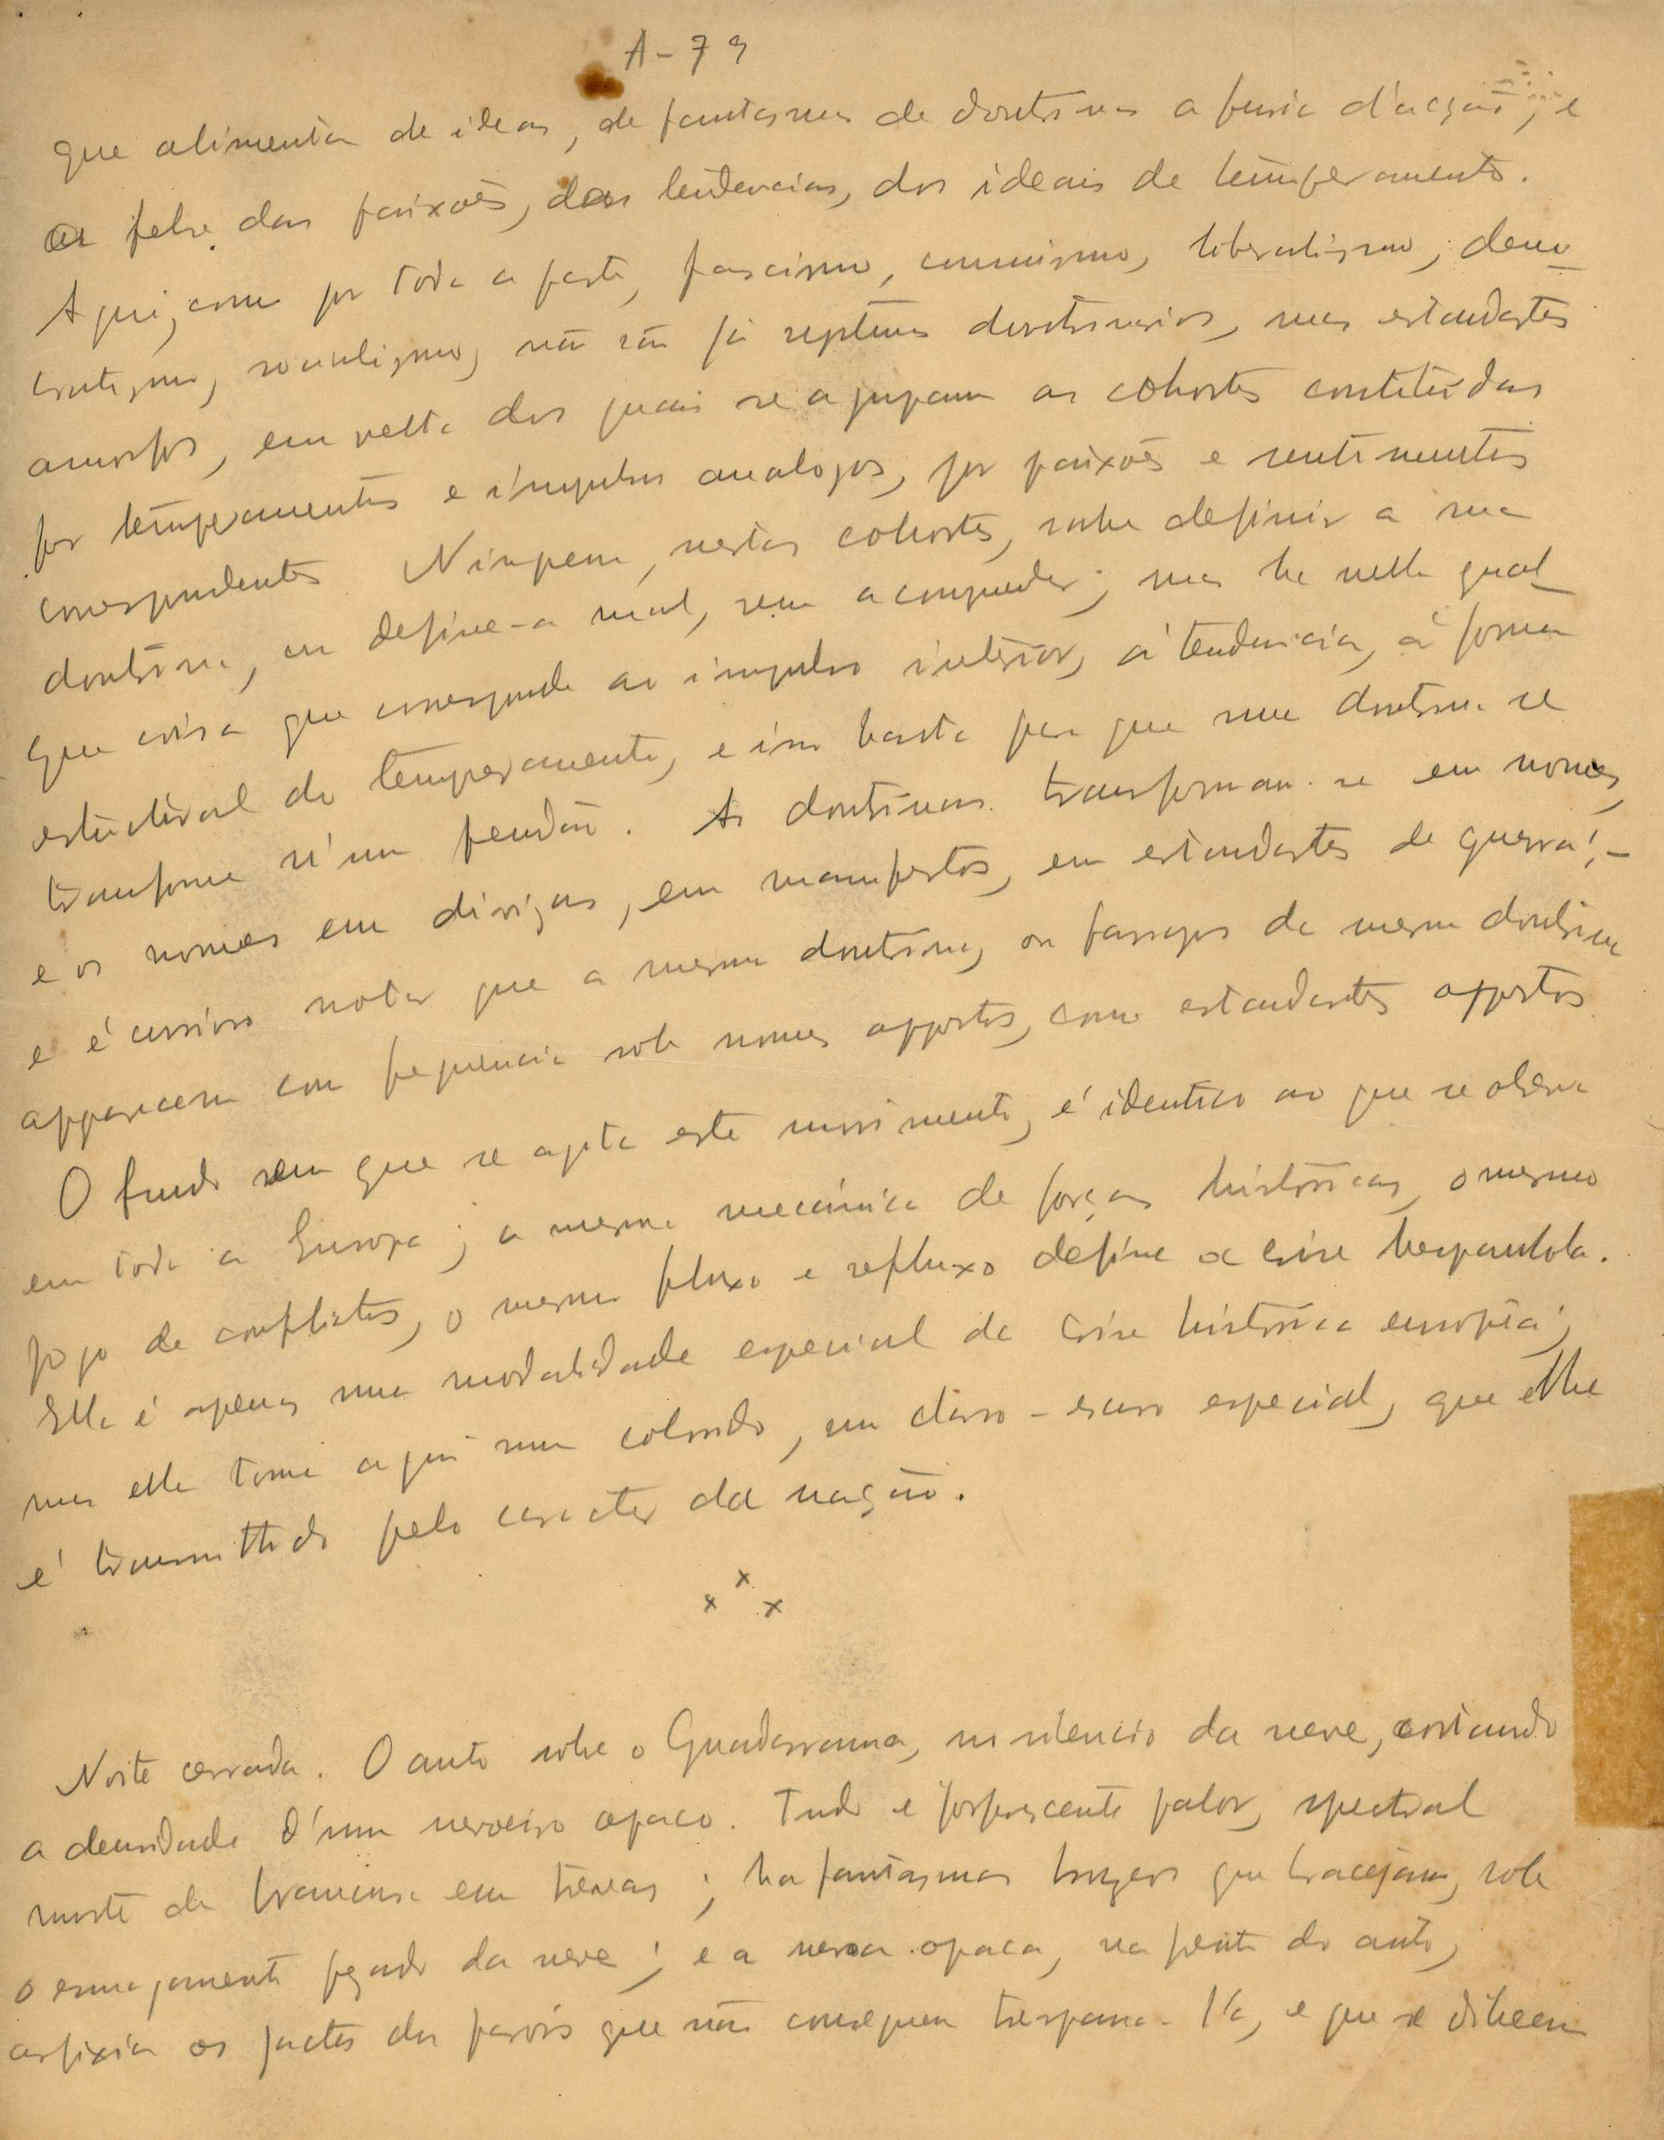 A-79
que alimenta de ideas, de fantasmas de doutrinas a furia d'acção, e
a febre das paixões, das tendencias, dos ideais de temperamento.
Aqui, como por toda a parte, fascismo, comunismo, liberalismo, demo-
cratismo, socialismo, não são já systemas doutrinarios, mas estandartes
amorfos, em volta dos quais se agrupam as cohortes constituidas
por temperamentos e impulsos analogos, por paixões e sentimentos
correspondentes. Ninguem, nestas cohortes, sabe definir a sua
doutrina, ou define-a mal, sem a comprender; mas ha nella qual-
quer coisa que corresponde ao impulso interior, á tendencia, á forma
estructural do temperamento, e isso basta para que uma doutrina se
transforme n'um pendão. As doutrinas transformam-se em nomes,
e os nomes em divisas, em manifestos, em estandartes de guerra; -
e é curioso notar que a mesma doutrina, ou farrapos da mesma doutrina
apparecem com frequencia sob nomes oppostos, como estandartes oppostos.
O fundo em que se agita este movimento, é identico ao que se observa
em toda a Europa; a mesma mecánica de forças historicas, o mesmo
jogo de conflictos, o mesmo fluxo e refluxo define a crise hespanhola.
Ella é apenas uma modalidade especial da crise historica europêa;
mas ella toma aqui um colorido, um claro-escuro especial, que lhe
é transmittido pelo caracter da nação.
x x x
Noite cerrada. O auto sobe o Guadarrama, no silencio da neve, cortando
a densidade d'um nevoeiro opaco. Tudo é forforescente palor, spectral
morte de brancura em trevas; ha fantasmas que bracejam, sob
o esmagamento pezado da neve; e a nevoa opaca, na frente do auto,
asfixia os jactos dos faróis que não conseguem trespassa-l'a, e que se diluem